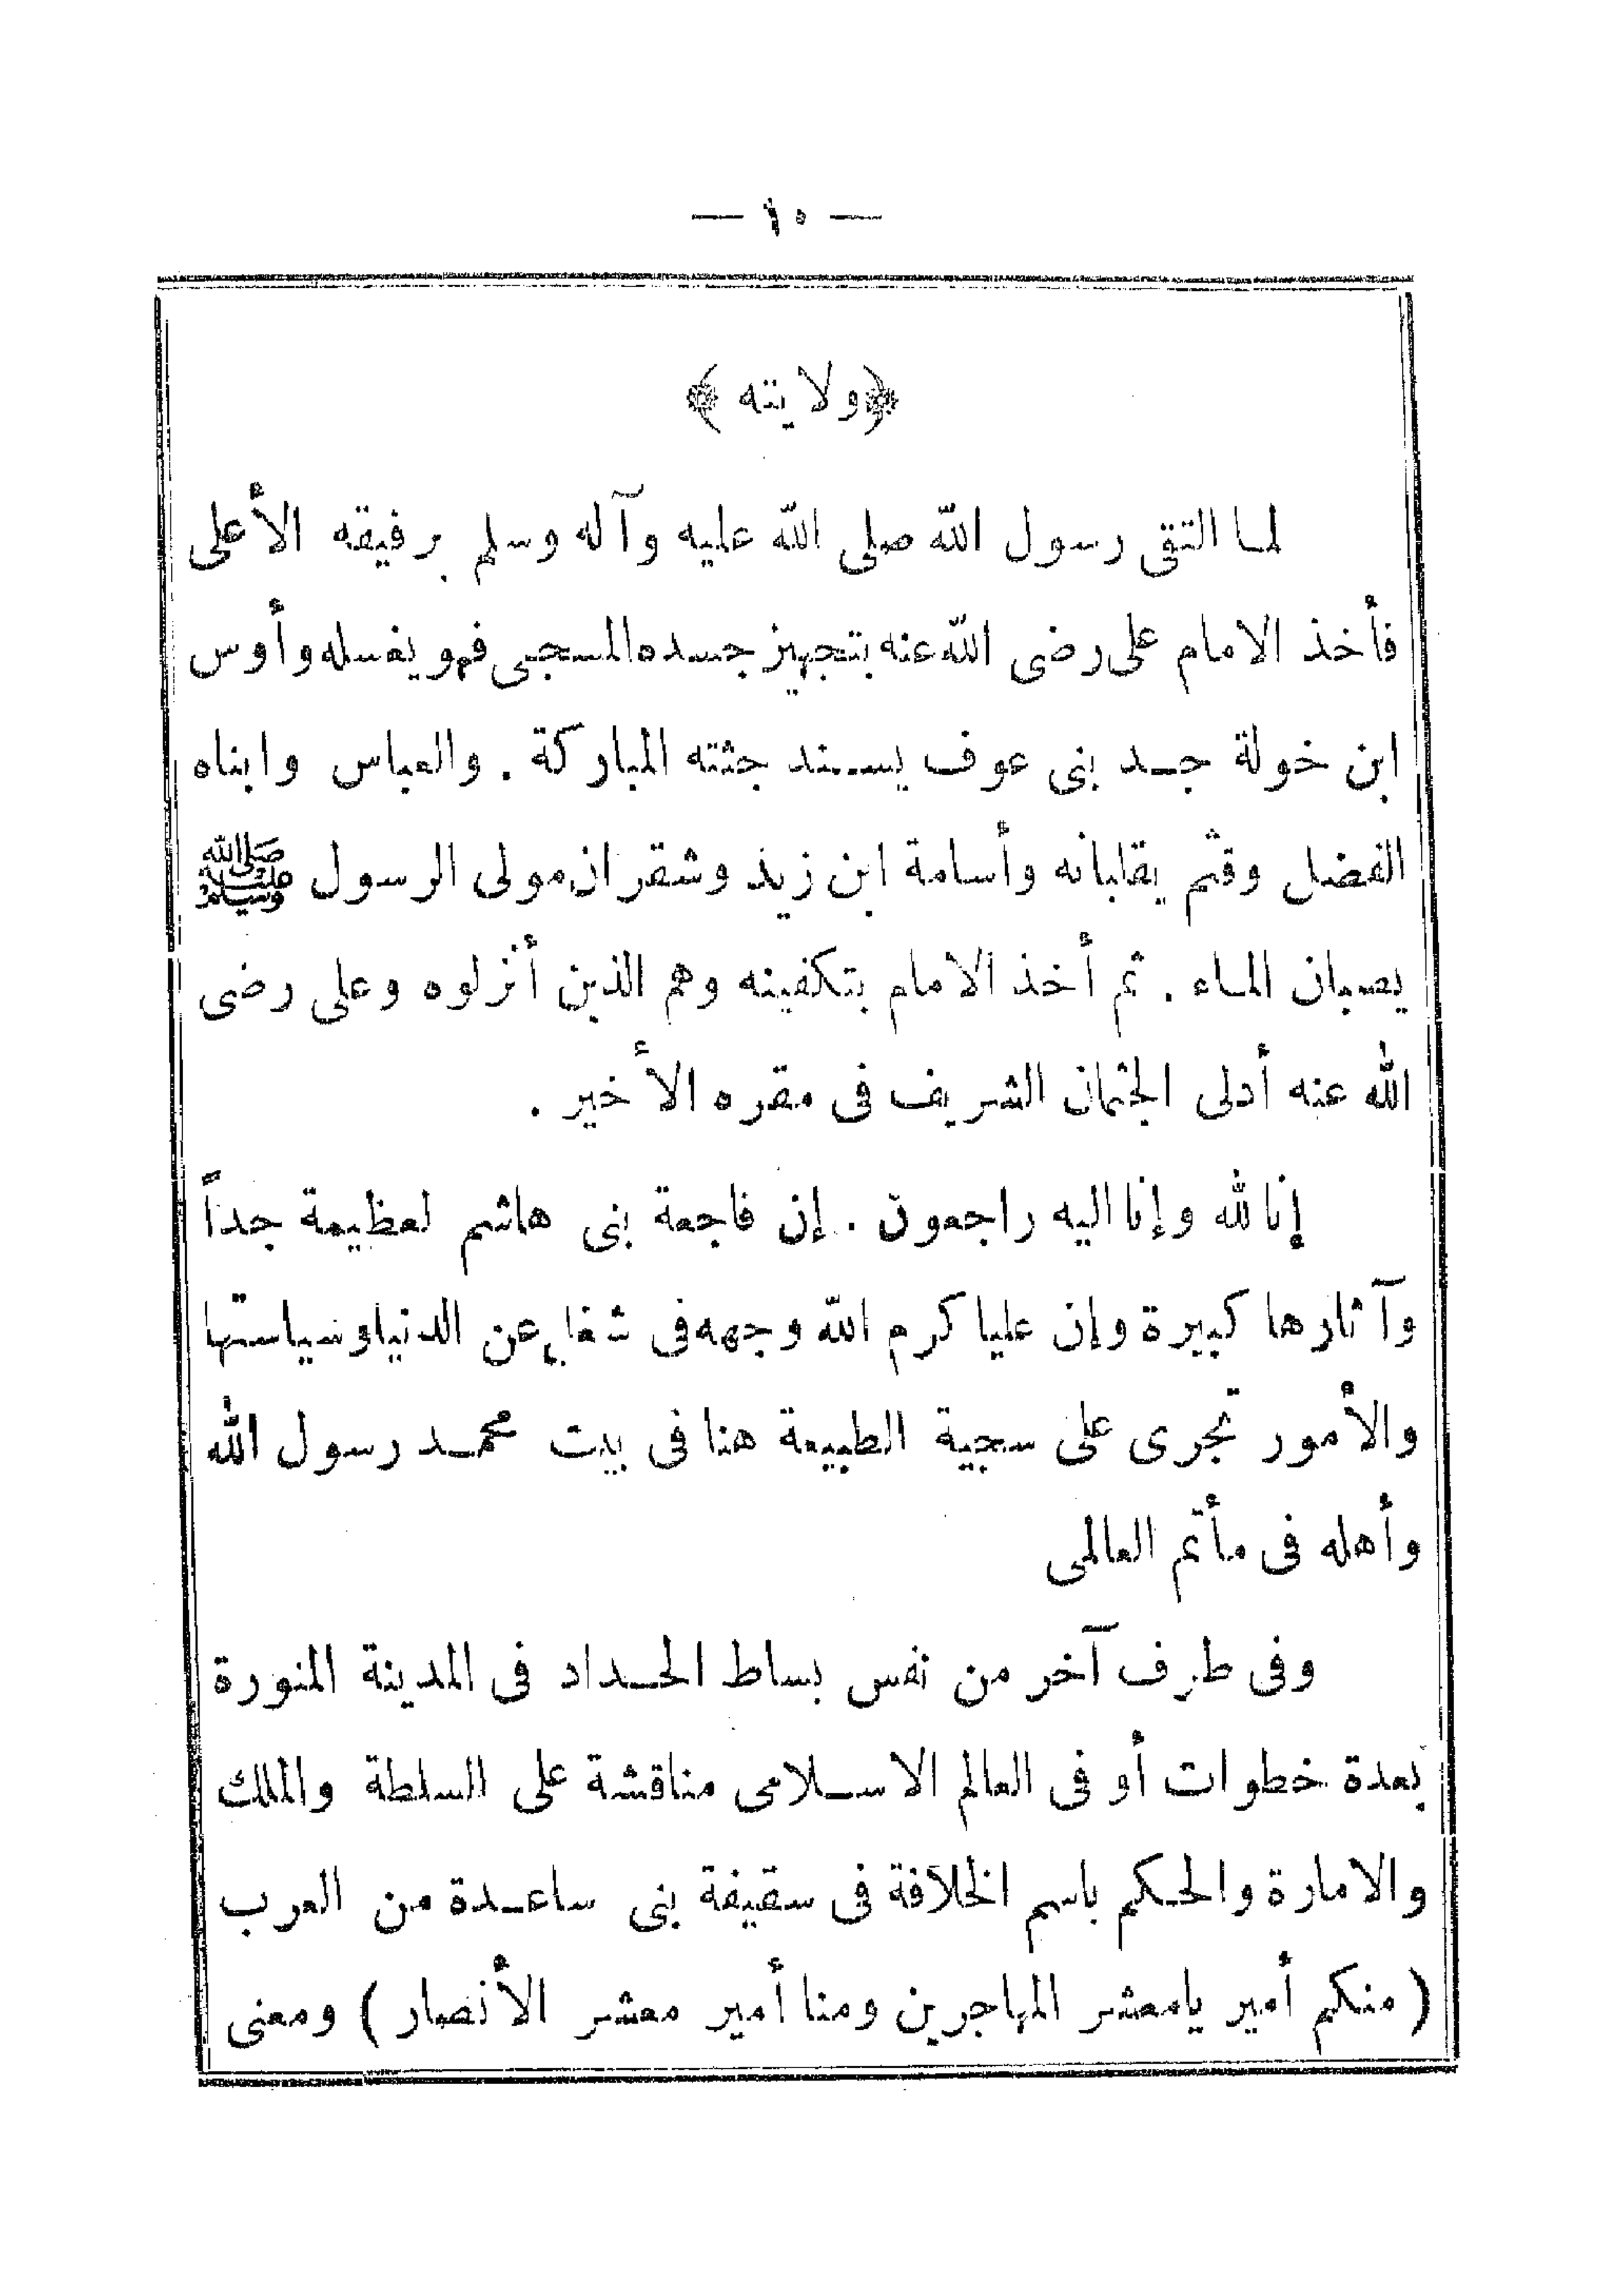 — ١٥ —
﴿ولايته﴾
لما التقى رسول الله صلى الله عليه وآله وسلم برفيقه الأعلى
فأخذ الامام على رضى الله عنه بتجهيز جسده المسجى فهو يغسله وأوس
ابن خولة جد بنى عوف يسند جثته المباركة . والعباس وابناه
الفضل وقثم يقلبانه وأسامة ابن زيد وشقران مولى الرسول ﷺ
يصبان الماء . ثم أخذ الامام بتكفينه وهم الذين أنزلوه وعلى رضى
الله عنه أدلى الجثمان الشريف فى مقره الأخير .
إنا لله وإنا اليه راجعون . إن فاجعة بنى هاشم لعظيمة جداً
وآثارها كبيرة وإن عليا كرم الله وجهه فى شغل عن الدنيا وسياستها
والأمور تجرى على سجية الطبيعة هنا فى بيت محمد رسول الله
وأهله فى مأتم العالمى
وفى طرف آخر من نفس بساط الحداد فى المدينة المنورة
بعدة خطوات أو فى العالم الاسلامى مناقشة على السلطة والملك
والامارة والحكم باسم الخلافة فى سقيفة بنى ساعدة من العرب
( منكم أمير يامعشر المهاجرين ومنا أمير معشر الأنصار ) ومعنى